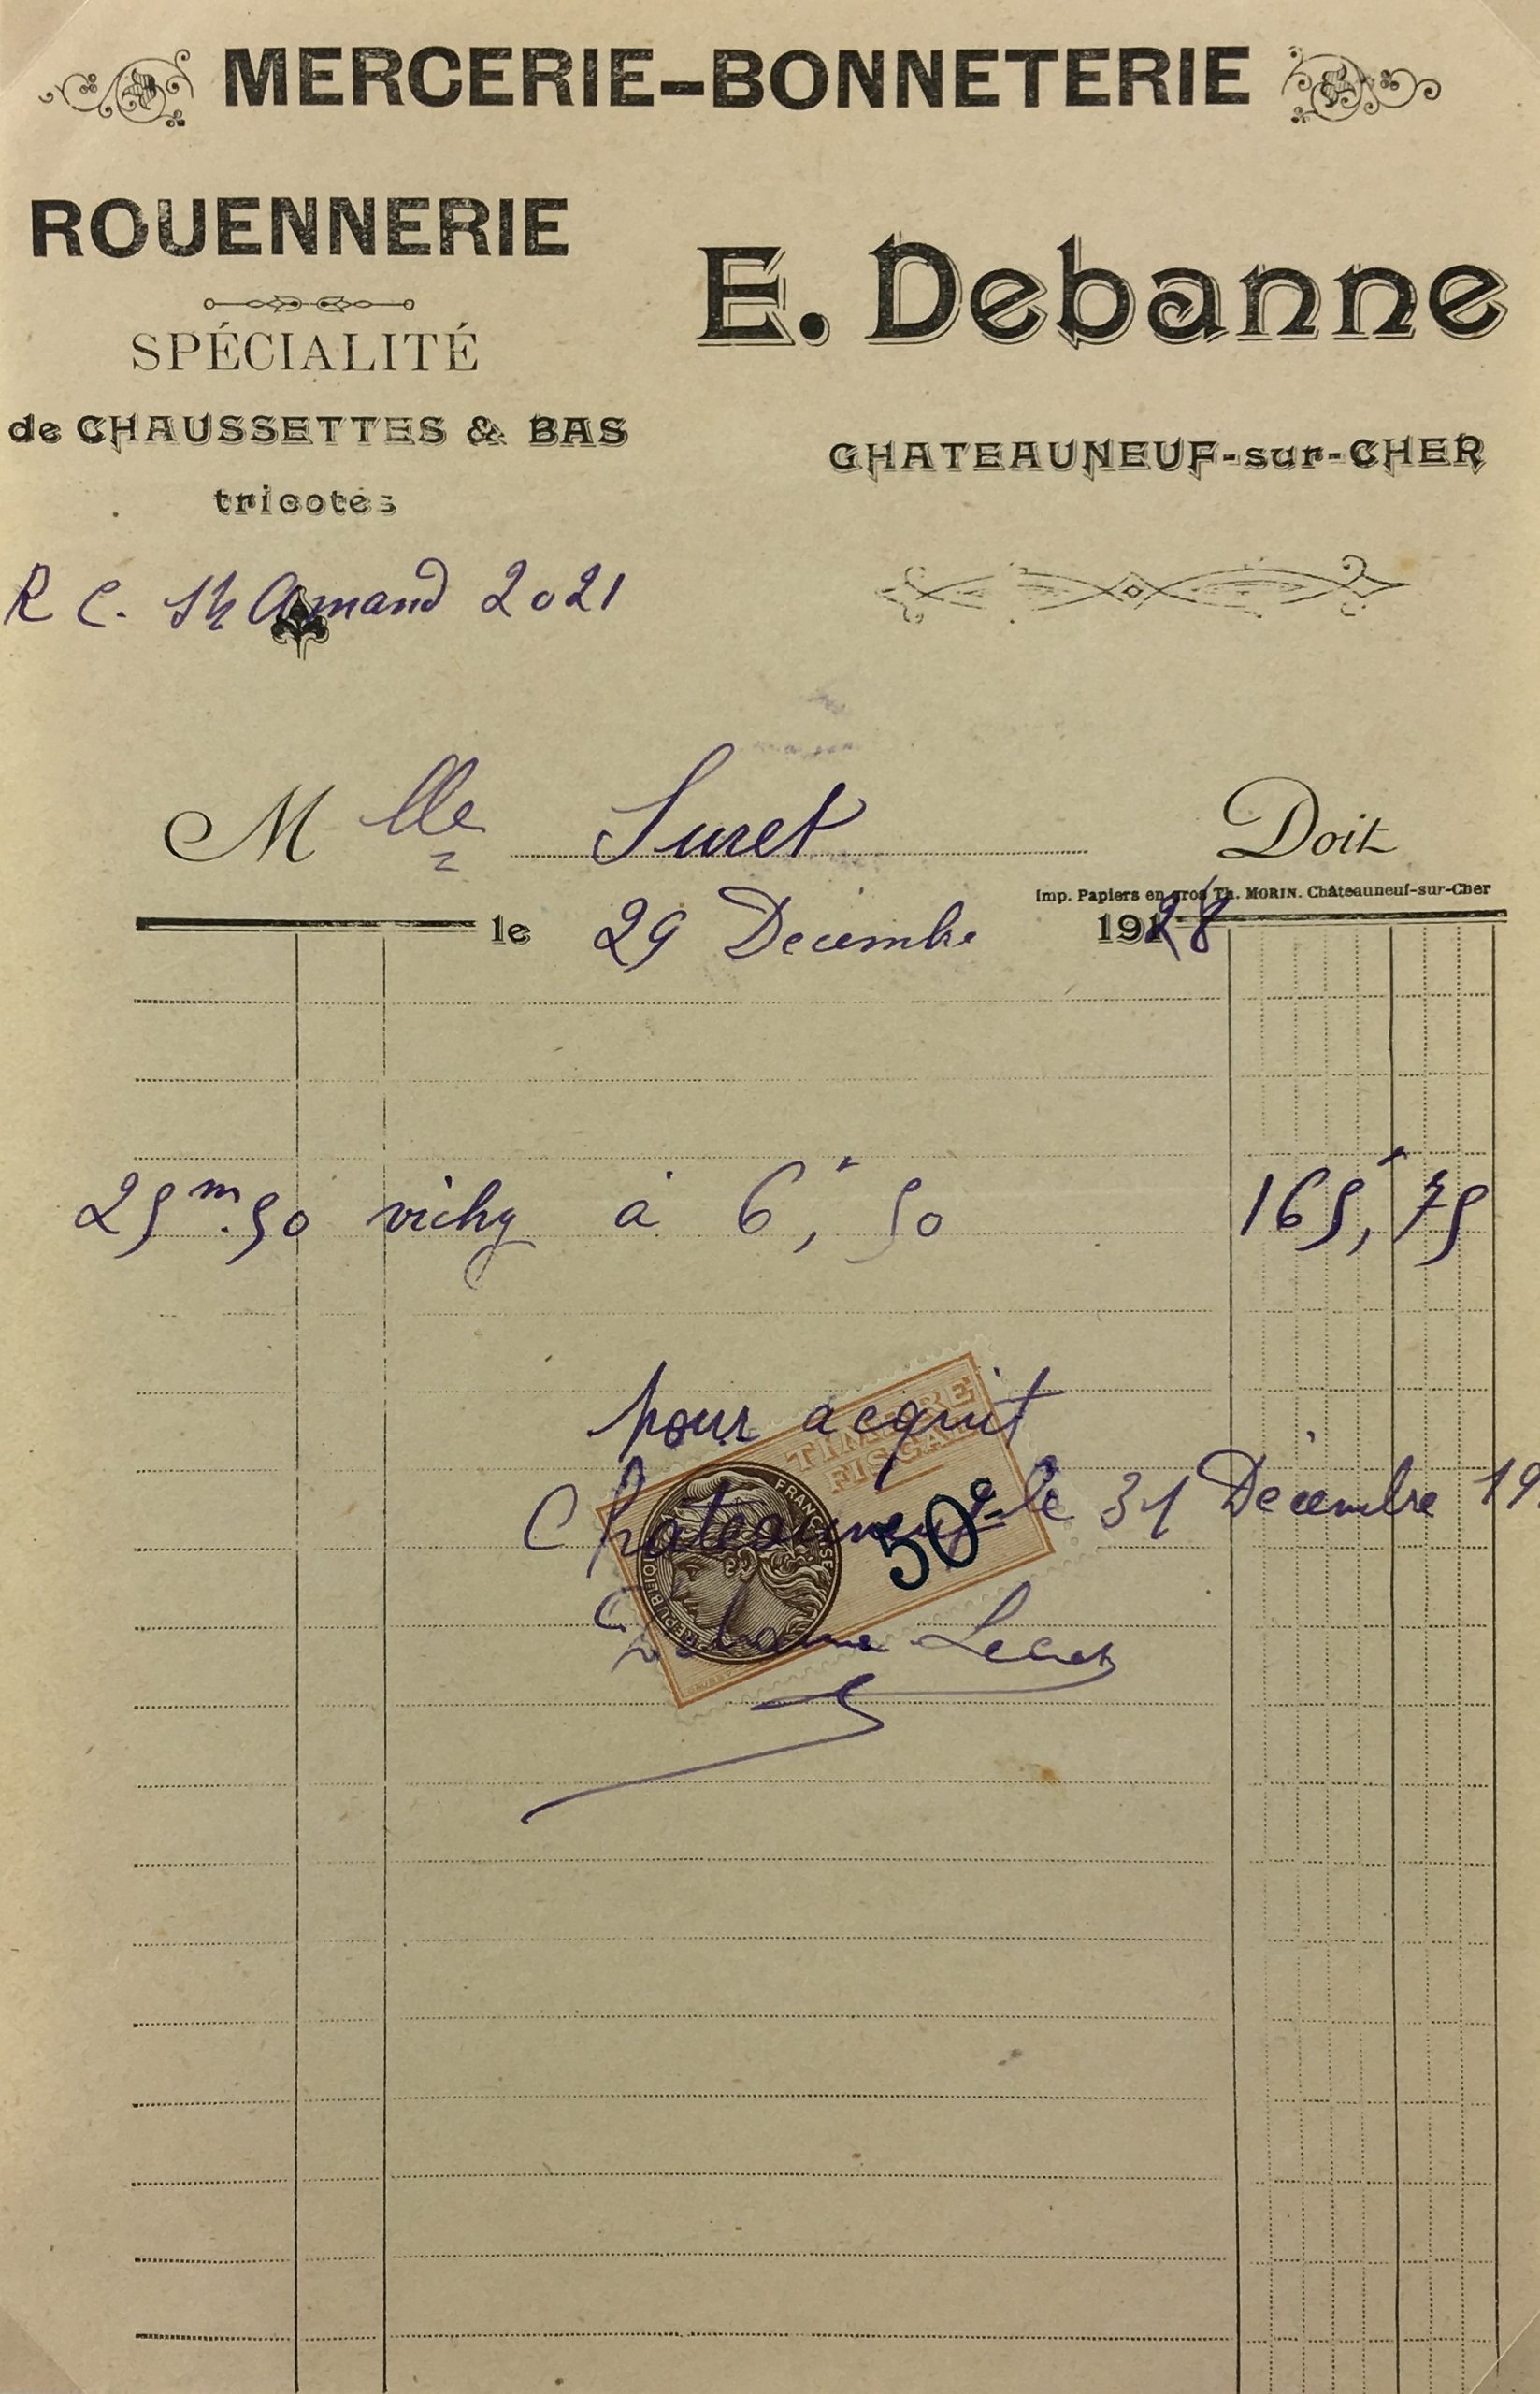 MERCERIE-BONNETERIE
ROUENNERIE
E. Debanne
SPÉCIALITÉ
de CHAUSSETTES & BAS
CHATEAUNEUF-sur-CHER
tricotés
R C. St Amand 2021
Mlle Suret Doit
Imp. Papiers en gros Th. MORIN. Châteauneuf-sur-Cher
le 29 Decembre 1928
25m.50 vichy à 6f,50 165f,75
pour acquit
TIMBRE
FISCAL
Chateauneuf le 31 Décembre 19
RÉPUBLIQUE FRANÇAISE
50c
Debanne